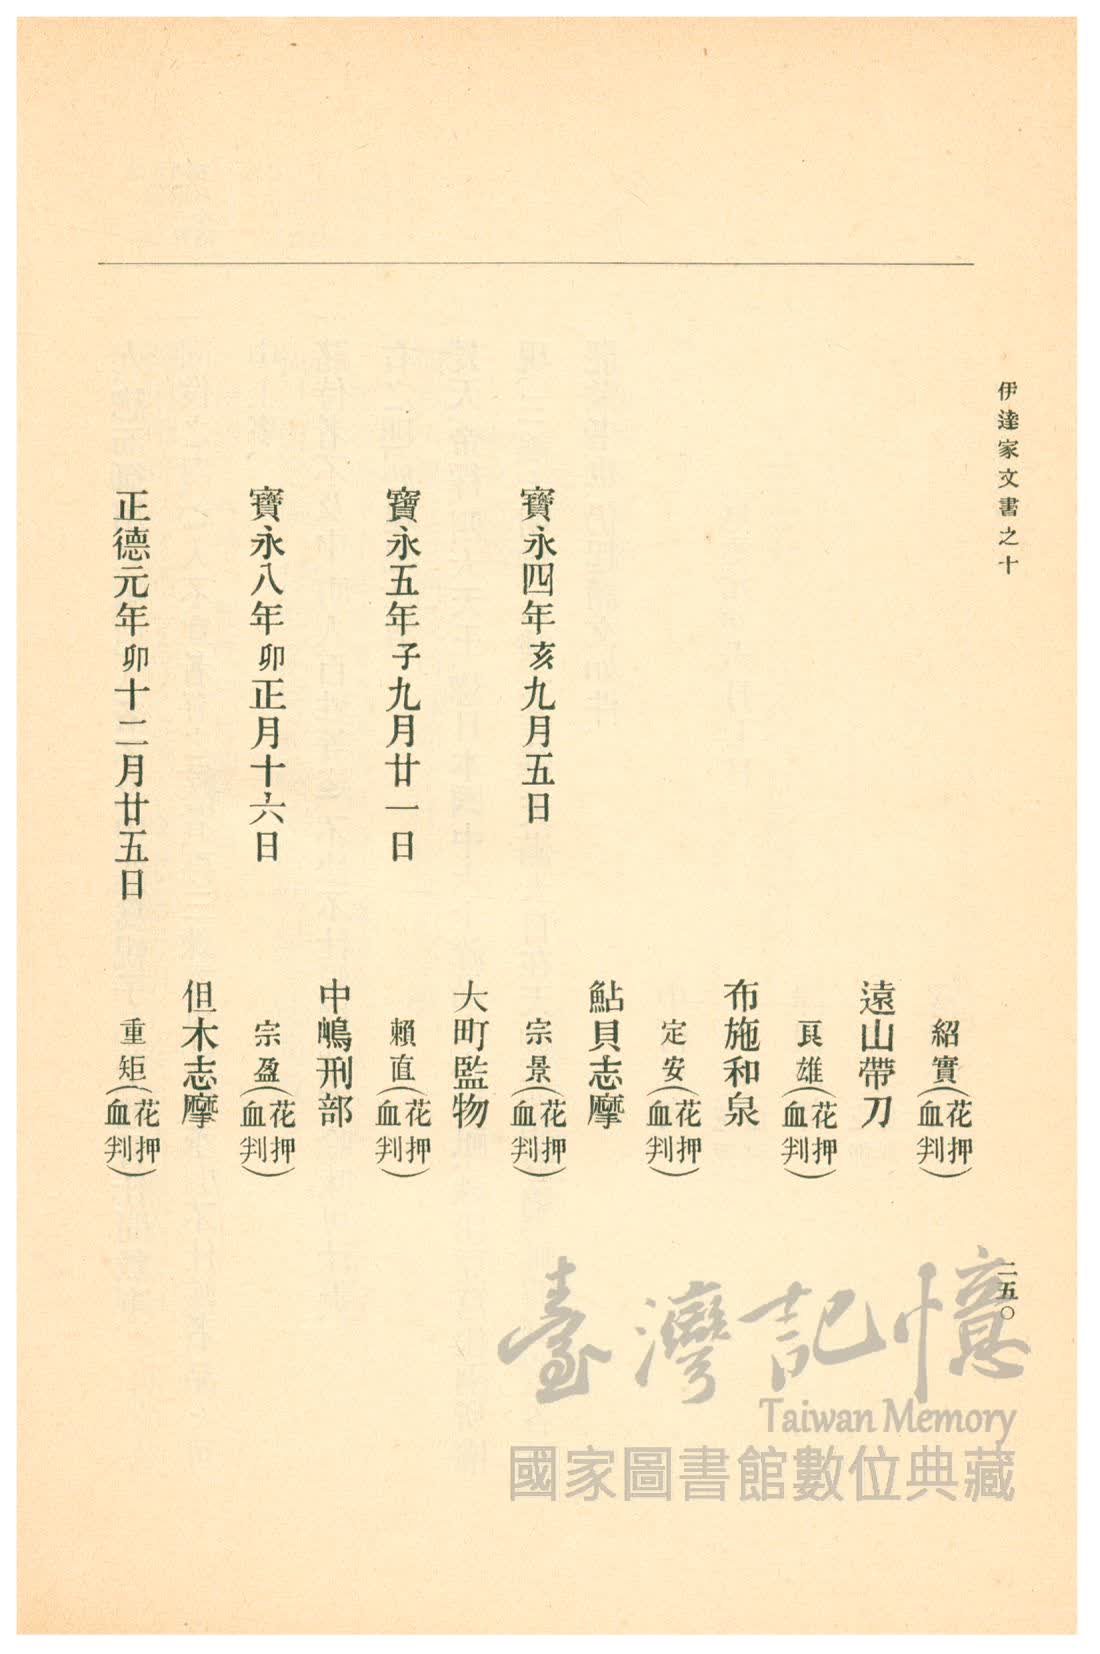 伊達家文書之十
二五〇
紹實(花押)(血判)
遠山帶刀
良雄(花押)(血判)
布施和泉
定安(花押)(血判)
鮎貝志摩
寶永四年亥九月五日
宗景(花押)(血判)
大町監物
寶永五年子九月廿一日
賴直(花押)(血判)
中嶋刑部
寶永八年卯正月十六日
宗盈(花押)(血判)
但木志摩
正德元年卯十二月廿五日
重矩(花押)(血判)
臺灣記憶
Taiwan Memory
國家圖書館數位典藏